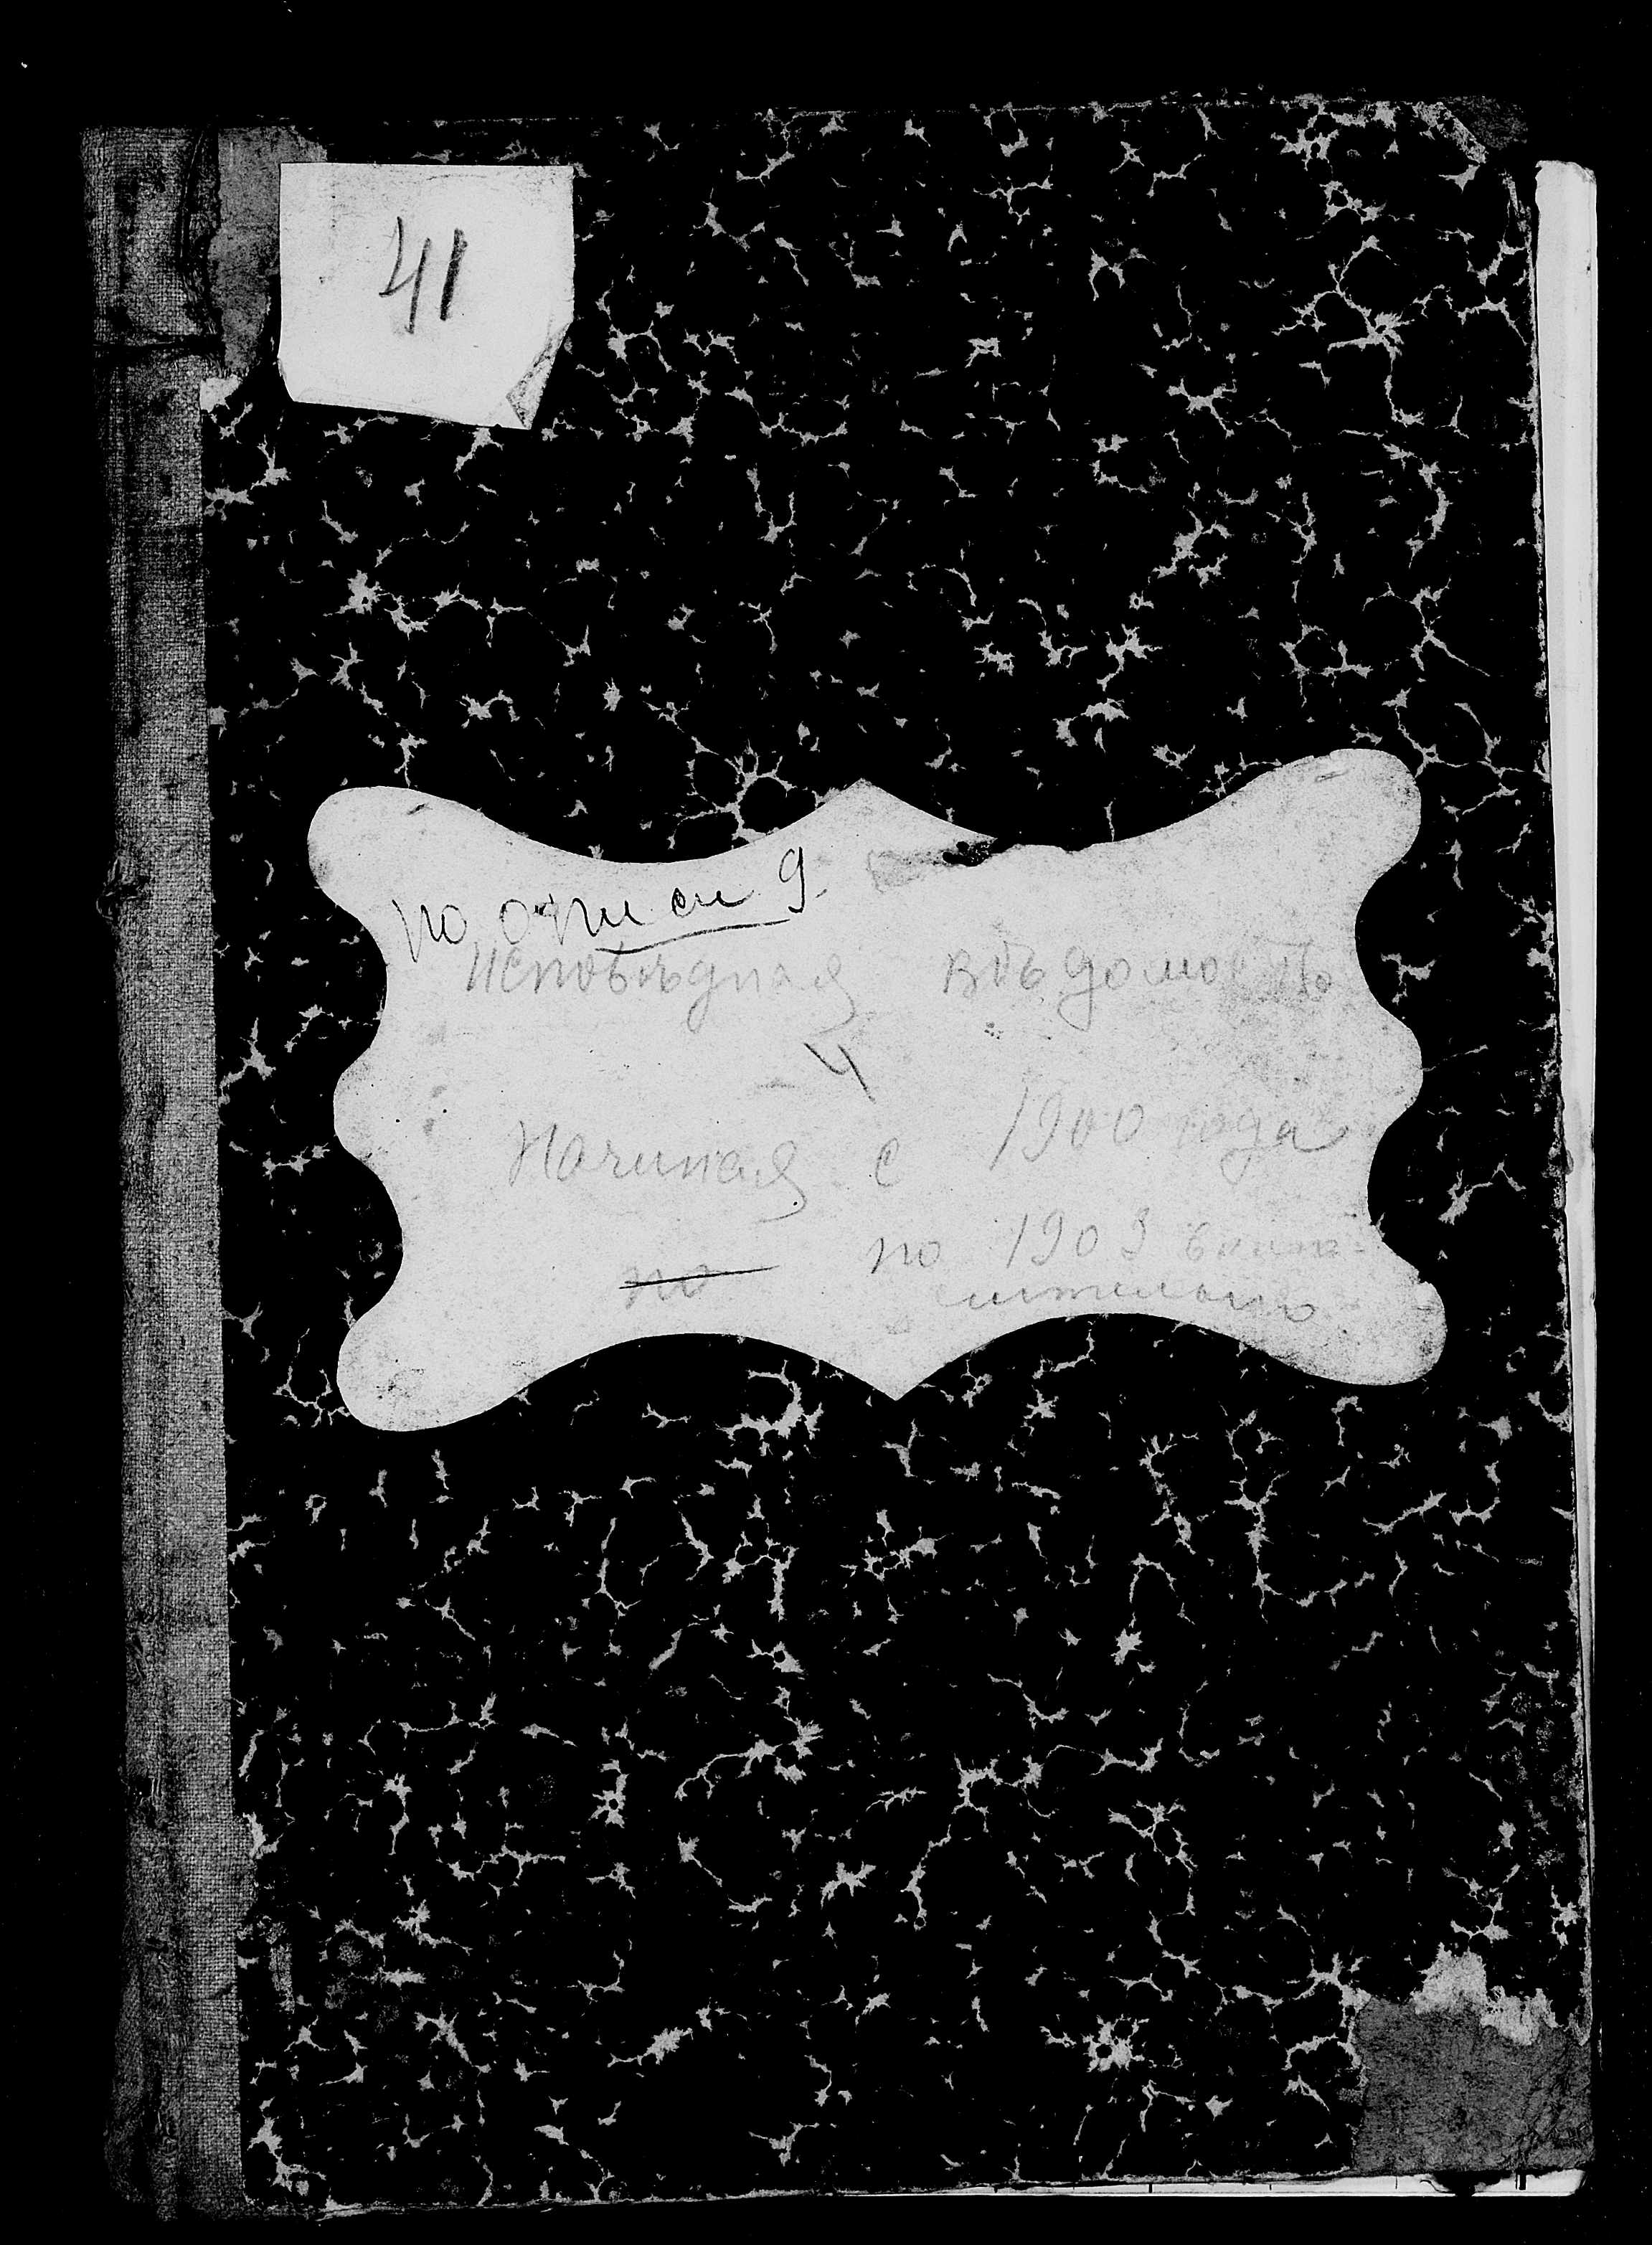 41
по описи 9.
Исповѣдная вѣдомость
4
Начиная с 1900 года
по по 1903 вклю-
чительно